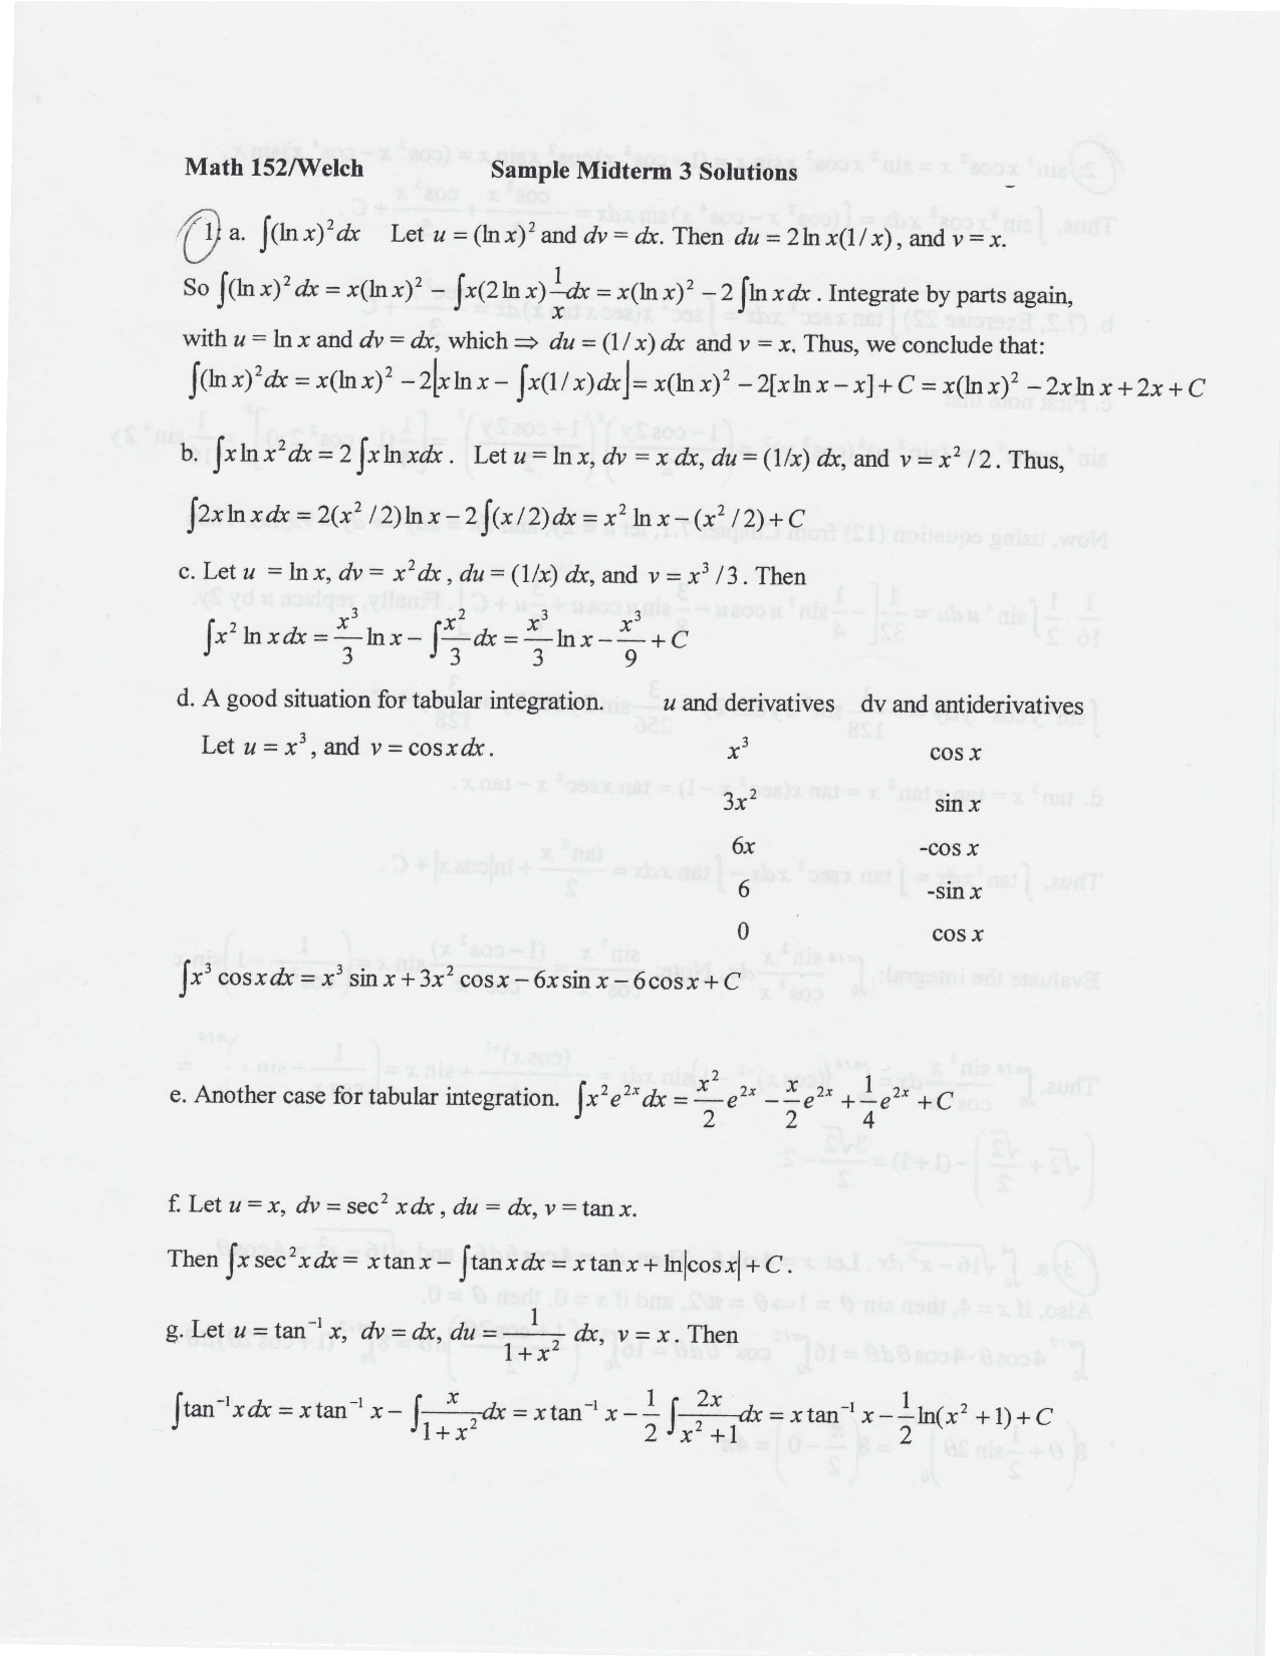 Math 152/Welch Sample Midterm 3 Solutions
1. a. ∫(ln x)² dx Let u = (ln x)² and dv = dx. Then du = 2 ln x(1/x), and v = x.
So ∫(ln x)² dx = x(ln x)² − ∫x(2 ln x) 1/x dx = x(ln x)² − 2 ∫ln x dx. Integrate by parts again,
with u = ln x and dv = dx, which ⇒ du = (1/x) dx and v = x. Thus, we conclude that:
∫(ln x)² dx = x(ln x)² − 2[x ln x − ∫x(1/x)dx] = x(ln x)² − 2[x ln x − x] + C = x(ln x)² − 2x ln x + 2x + C
b. ∫x ln x² dx = 2 ∫x ln x dx. Let u = ln x, dv = x dx, du = (1/x) dx, and v = x²/2. Thus,
∫2x ln x dx = 2(x²/2) ln x − 2 ∫(x/2) dx = x² ln x − (x²/2) + C
c. Let u = ln x, dv = x² dx, du = (1/x) dx, and v = x³/3. Then
∫x² ln x dx = x³/3 ln x − ∫x²/3 dx = x³/3 ln x − x³/9 + C
d. A good situation for tabular integration. u and derivatives dv and antiderivatives
Let u = x³, and v = cos x dx. x³ cos x
3x² sin x
6x -cos x
6 -sin x
0 cos x
∫x³ cos x dx = x³ sin x + 3x² cos x − 6x sin x − 6 cos x + C
e. Another case for tabular integration. ∫x² e²ˣ dx = x²/2 e²ˣ − x/2 e²ˣ + 1/4 e²ˣ + C
f. Let u = x, dv = sec² x dx, du = dx, v = tan x.
Then ∫x sec² x dx = x tan x − ∫tan x dx = x tan x + ln|cos x| + C.
g. Let u = tan⁻¹ x, dv = dx, du = 1/(1 + x²) dx, v = x. Then
∫tan⁻¹ x dx = x tan⁻¹ x − ∫ x/(1 + x²) dx = x tan⁻¹ x − 1/2 ∫ 2x/(x² + 1) dx = x tan⁻¹ x − 1/2 ln(x² + 1) + C